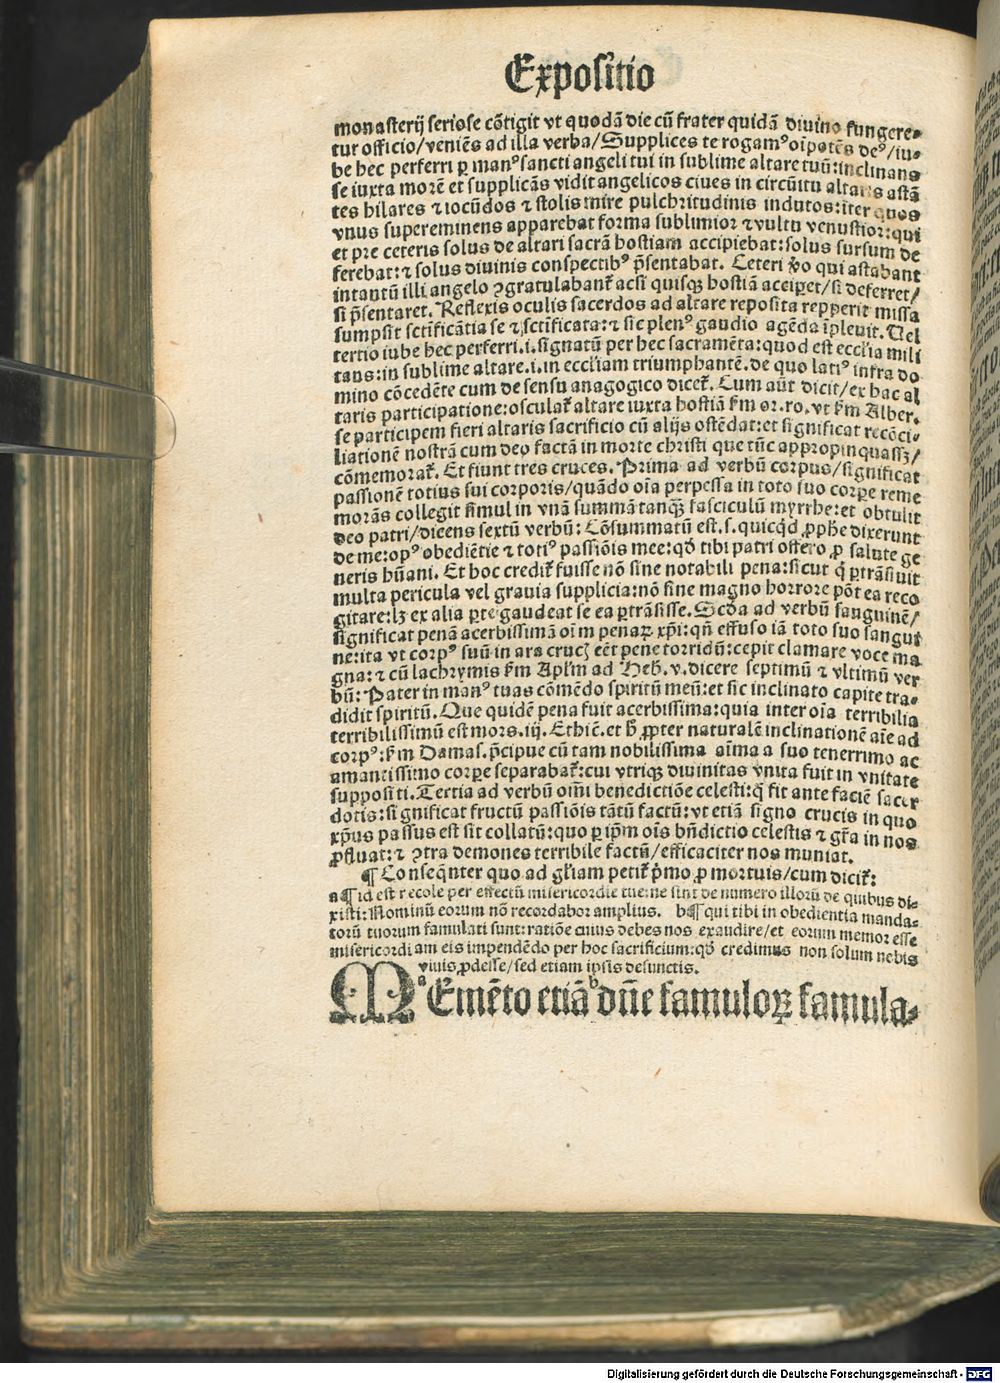 Expositio
monasterij seriose cõtigit vt quodã die cũ frater quidã diuino fungere⸗
tur officio/veniẽs ad illa verba/Supplices te rogamꝰ oĩpotẽs deꝰ/iu⸗
be hec perferri ꝑ manꝰ sancti angeli tui in sublime altare tuũ:inclinans
se iuxta morẽ et supplicãs vidit angelicos ciues in circũitu altaris astã
tes hilares ⁊ iocũdos ⁊ stolis mire pulchritudinis indutos:iter quos
vnus supereminens apparebat forma sublimior ⁊ vultu venustior:qui
et pre ceteris solus de altari sacrã hostiam accipiebat:solus sursum de
ferebat:⁊ solus diuinis conspectibꝰ p̃sentabat. Ceteri ꝟo qui astabant
intantũ illi angelo ꝯgratulabant᷑ acsi quisqꝫ hostiã acciꝑet/si deferret/
si p̃sentaret. Reflexis oculis sacerdos ad altare reposita repperit missa
sumpsit sctificãtia se ⁊ sctificata:⁊ sic plenꝰ gaudio agẽda ĩpleuit. Uel
tertio iube hec perferri.i.signatũ per hec sacramẽta:quod est eccl'ia mili
tans:in sublime altare.i.in eccl'iam triumphantẽ.de quo latiꝰ infra do
mino cõcedẽte cum de sensu anagogico dicet᷑. Cum aũt dicit/ex hac al
taris participatione:osculat᷑ altare iuxta hostiã ẜm or.ro.vt ẜm Alber.
se participem fieri altaris sacrificio cũ alijs ostẽdat:et significat recõci⸗
liationẽ nostrã cum deo factã in morte christi que tũc appropinquassꝫ/
cõmemorat᷑. Et fiunt tres cruces. Prima ad verbũ corpus/significat
passionẽ totius sui corporis/quãdo oĩa perpessa in toto suo corꝑe reme
morãs collegit simul in vnã summã tanqꝫ fasciculũ myrrhe:et obtulit
deo patri/dicens sextũ verbũ: Cõsummatũ est.s.quicq̃d ꝓph̃e dixerunt
de me:opꝰ obediẽtie ⁊ totiꝰ passiõis mee:qđ tibi patri offero ꝓ salute ge
neris hũani. Et hoc credit᷑ fuisse nõ sine notabili pena:sicut q̃ ꝑtrãsiuit
multa pericula vel grauia supplicia:nõ sine magno horrore põt ea reco
gitare:lꝫ ex alia ꝑte gaudeat se ea ꝑtrãsisse. Scđa ad verbũ sanguinẽ/
significat penã acerbissimã oĩm penaꝝ xp̃i:qñ effuso iã toto suo sangui
ne:ita vt corpꝰ suũ in ara crucꝭ eẽt pene torridũ:cepit clamare voce ma
gna:⁊ cũ lachrymis ẜm Apl'm ad Heb.v.dicere septimũ ⁊ vltimũ ver
bũ: Pater in manꝰ tuas cõmẽdo spiritũ meũ:et sic inclinato capite tra⸗
didit spiritũ. Que quidẽ pena fuit acerbissima:quia inter oĩa terribilia
terribilissimũ est mors.iij. Ethic̃.et h̃ ꝓpter naturalẽ inclinationẽ aĩe ad
corpꝰ:ẜm Damas.p̃cipue cũ tam nobilissima aĩma a suo tenerrimo ac
amantissimo corꝑe separabat᷑:cui vtriqꝫ diuinitas vnita fuit in vnitate
suppositi.Tertia ad verbũ oĩm̃i benedictiõe celesti:q̃ fit ante faciẽ sacer
dotis:significat fructũ passiõis tãtũ factũ:vt etiã signo crucis in quo
xp̃us passus est sit collatũ:quo ꝑ ip̃m oĩs bñdictio celestis ⁊ gr̃a in nos
ꝓfluat:⁊ ꝯtra demones terribile factũ/efficaciter nos muniat.
¶ Conseq̃nter quo ad gl'iam petit᷑ p̃mo ꝓ mortuis/cum dicit᷑:
a¶ id est recole per effectũ misericordie tue:ne sint de numero illorũ de quibus di⸗
xisti:Nominũ eorum nõ recordabor amplius. b¶ qui tibi in obedientia manda⸗
torũ tuorum famulati sunt:ratiõe cuius debes nos exaudire/et eorum memor esse
misericordiam eis impendẽdo per hoc sacrificium:qđ credimus non solum nobis
viuis ꝓdesse/sed etiam ipsis defunctis.
a b
MEmẽto etiã dñe famuloꝝ famula⸗
Digitalisierung gefördert durch die Deutsche Forschungsgemeinschaft - DFG